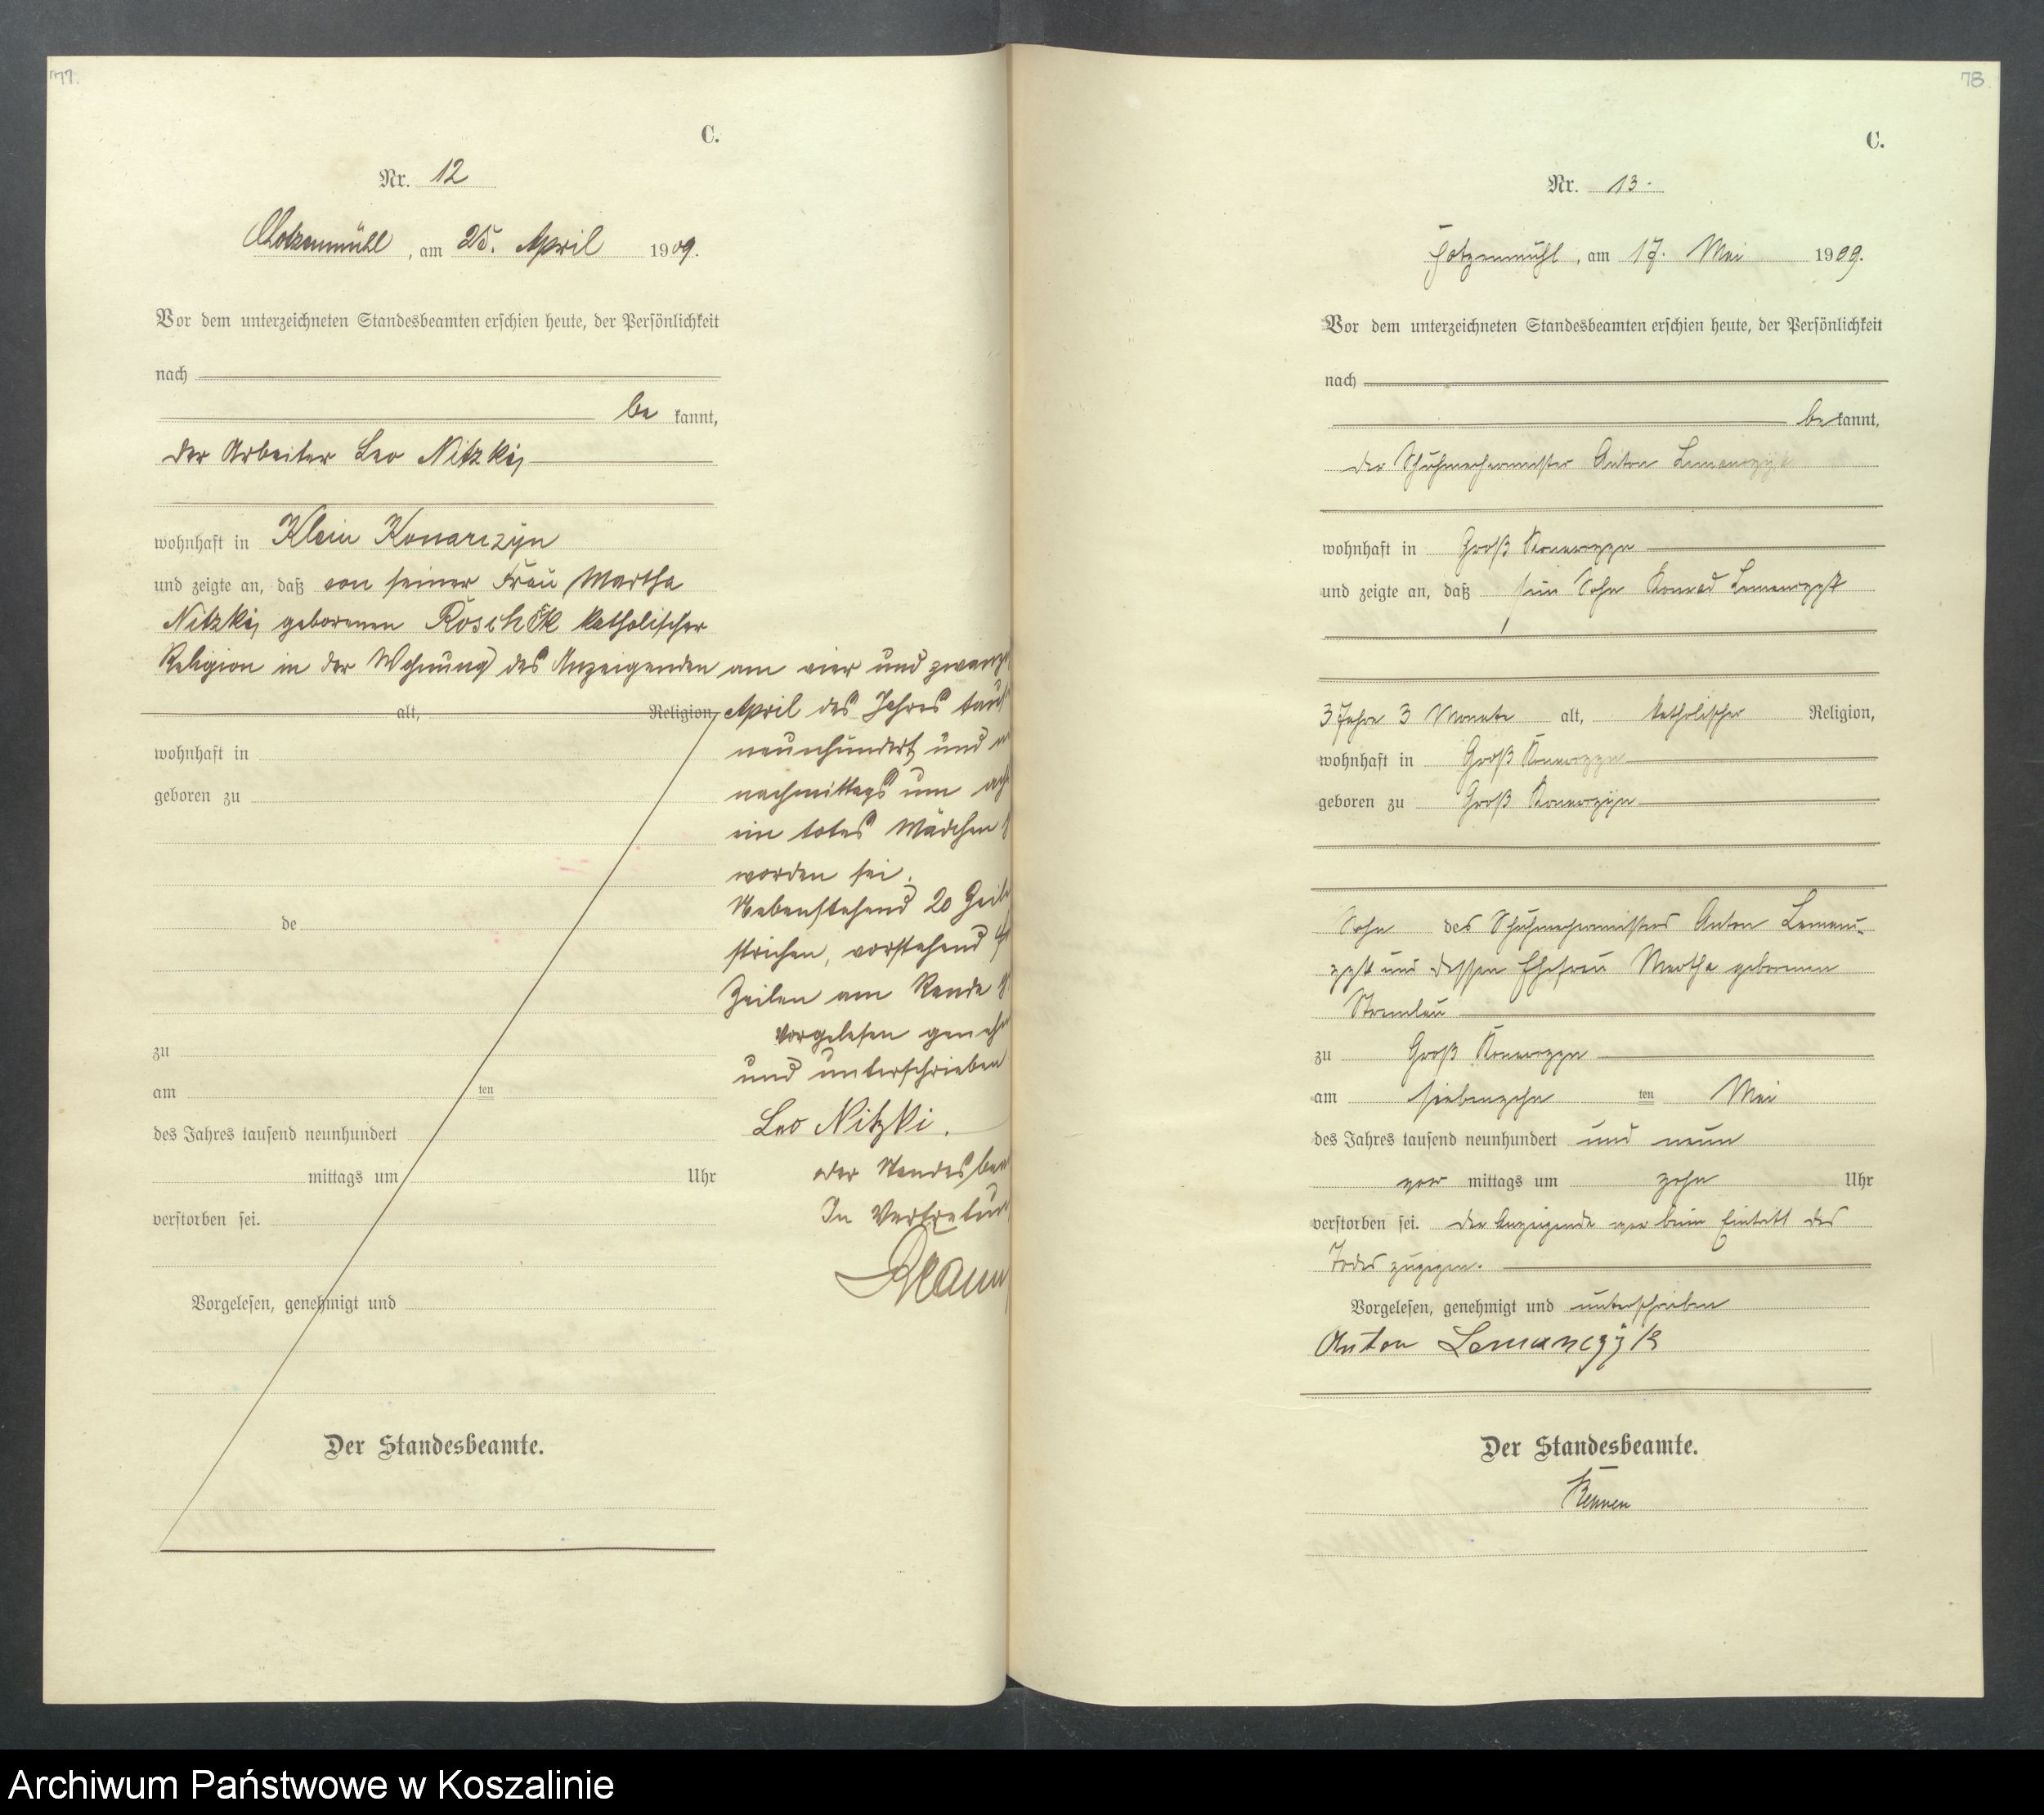 77.
C.
Nr. 12
Chotzenmühl, am 25. April 1909.
Vor dem unterzeichneten Standesbeamten erschien heute, der Persönlichkeit
nach
be kannt,
der Arbeiter Leo Nitzki,
wohnhaft in Klein Konarczyn
und zeigte an, daß von seiner Frau Martha
Nitzki, geborenen katholischer
Religion in der Wohnung des Anzeigenden am vier und zwanz
alt, Religion, April des Jahres taus
wohnhaft in neunhundert und n
geboren zu nachmittags um ach
ein totes Mädchen g
worden sei.
Nebenstehend 20 Zeil
de
strichen, vorstehend
Zeilen am Rande g
Vorgelesen geneh
zu
und unterschrieben
am ten
des Jahres tausend neunhundert Leo Nitzki.
mittags um Uhr
der Standesbea
verstorben sei. In Vertretun
Vorgelesen, genehmigt und
Der Standesbeamte.
78.
C.
Nr. 13.
Gotzenmühl, am 17. Mai 1909.
Vor dem unterzeichneten Standesbeamten erschien heute, der Persönlichkeit
nach
be kannt,
der Schuhmachermeister Anton Lemanczyk
wohnhaft in Groß Konarczyn
und zeigte an, daß sein Sohn Konrad Lemanczyk
3 Jahre 3 Monate alt, katholischer Religion,
wohnhaft in Groß Konarczyn
geboren zu Groß Konarczyn
Sohn des Schuhmachermeisters Anton Leman-
czyk und dessen Ehefrau Martha geborenen
Stremlau
zu Groß Konarczyn
am siebenzehn ten Mai
des Jahres tausend neunhundert und neun
vor mittags um zehn Uhr
verstorben sei. Der Anzeigende war beim Eintritt des
Todes zugegen.
Vorgelesen, genehmigt und unterschrieben
Anton Lemanczyk
Der Standesbeamte.
Archiwum Państwowe w Koszalinie